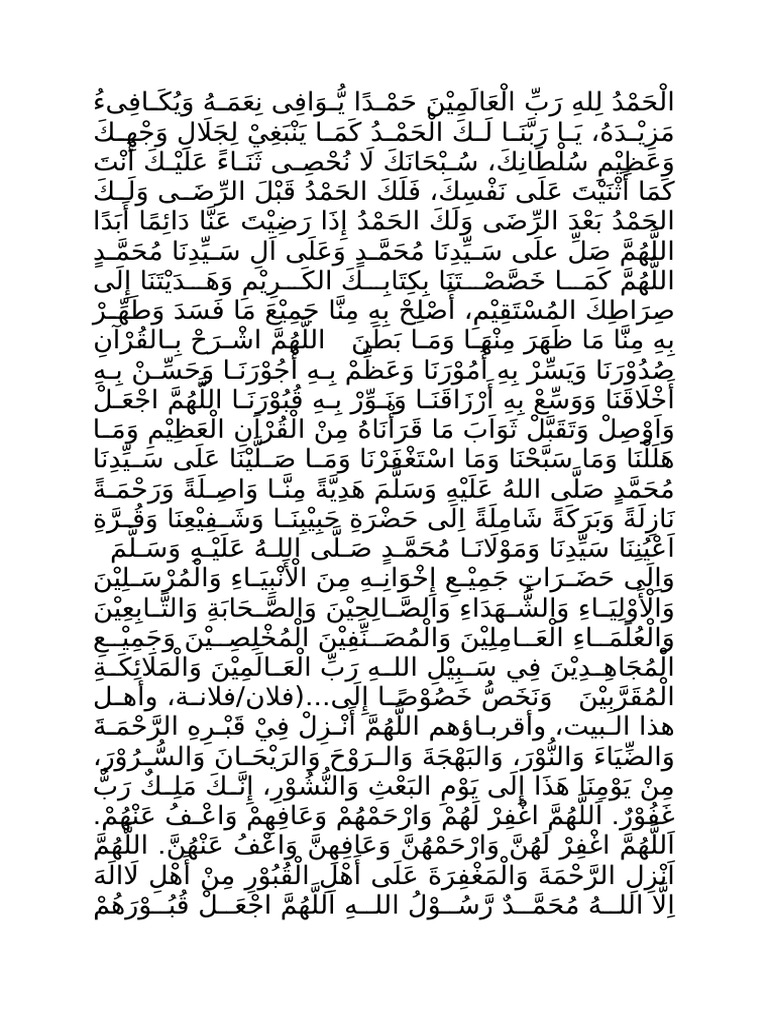 الْحَمْدُ لِلهِ رَبِّ الْعَالَمِيْنَ حَمْـدًا يُّـوَافِى نِعَمَـهُ وَيُكَـافِىءُ
مَزِيْـدَهُ، يَـا رَبَّنَـا لَـكَ الْحَمْـدُ كَمَـا يَنْبَغِيْ لِجَلَالِ وَجْهِـكَ
وَعَظِيْمِ سُلْطَانِكَ، سُـبْحَانَكَ لَا نُحْصِـى ثَنَـاءً عَلَيْـكَ أَنْتَ
كَمَا أَثْنَيْتَ عَلَى نَفْسِكَ، فَلَكَ الحَمْدُ قَبْلَ الرِّضَـى وَلَـكَ
الحَمْدُ بَعْدَ الرِّضَى وَلَكَ الحَمْدُ إِذَا رَضِيْتَ عَنَّا دَائِمًا أَبَدًا
اللَّهُمَّ صَلِّ علَى سَـيِّدِنَا مُحَمَّـدٍ وَعَلَى اَلِ سَـيِّدِنَا مُحَمَّـدٍ
اللَّهُمَّ كَمَـــا خَصَّصْـــتَنَا بِكِتَابِـــكَ الكَـــرِيْمِ وَهَـــدَيْتَنَا إِلَى
صِرَاطِكَ المُسْتَقِيْمِ، أَصْلِحْ بِهِ مِنَّا جَمِيْعَ مَا فَسَدَ وَطَهِّـرْ
بِهِ مِنَّا مَا ظَهَرَ مِنْهَـا وَمَـا بَطَنَ اللَّهُمَّ اشْـرَحْ بِـالقُرْآنِ
صُدُوْرَنَا وَيَسِّرْ بِهِ أُمُوْرَنَا وَعَظِّمْ بِـهِ أُجُوْرَنَـا وَحَسِّـنْ بِـهِ
أَخْلَاقَنَا وَوَسِّعْ بِهِ أَرْزَاقَنَـا وَنَـوِّرْ بِـهِ قُبُوْرَنَـا اللَّهُمَّ اجْعَـلْ
وَاَوْصِلْ وَتَقَبَّلْ ثَوَابَ مَا قَرَأْنَاهُ مِنْ الْقُرْاَنِ الْعَظِيْمِ وَمَـا
هَلَلْنَا وَمَا سَبَّحْنَا وَمَا اسْتَغْفَرْنَا وَمَـا صَـلَّيْنَا عَلَى سَـيِّدِنَا
مُحَمَّدٍ صَلَّى اللهُ عَلَيْهِ وَسَلَّمَ هَدِيَّةً مِنَّـا وَاصِـلَةً وَرَحْمَـةً
نَازِلَةً وَبَرَكَةً شَامِلَةً اِلَى حَضْرَةِ حَبِيْبِنَـا وَشَـفِيْعِنَا وَقُـرَّةِ
اَعْيُنِنَا سَيِّدِنَا وَمَوْلَانَـا مُحَمَّـدٍ صَـلَّى اللـهُ عَلَيْـهِ وَسَـلَّمَ
وَاِلَى حَضَـرَاتِ جَمِيْـعِ إِخْوَانِـهِ مِنَ الْأَنْبِيَـاءِ وَالْمُرْسَـلِيْنَ
وَالْأَوْلِيَـاءِ وَالشُّـهَدَاءِ وَالصَّـالِحِيْنَ وَالصَّـحَابَةِ وَالتَّـابِعِيْنَ
وَالْعُلَمَــاءِ الْعَــامِلِيْنَ وَالْمُصَــنِّفِيْنَ الْمُخْلِصِــيْنَ وَجَمِيْــعِ
الْمُجَاهِـدِيْنَ فِي سَـبِيْلِ اللـهِ رَبِّ الْعَـالَمِيْنَ وَالْمَلَائِكَـةِ
الْمُقَرَّبِيْنَ وَنَخَصُّ خَصُوْصًـا إِلَى...(فلان/فلانـة، وأهـل
هذا الـبيت، وأقربـاؤهم اللَّهُمَّ أَنْـزِلْ فِيْ قَبْـرِهِ الرَّحْمَـةَ
وَالضِّيَاءَ وَالنُّوْرَ، وَالبَهْجَةَ وَالـرَوْحَ وَالرَيْحَـانَ وَالسُّـرُوْرَ،
مِنْ يَوْمِنَا هَذَا إِلَى يَوْمِ البَعْثِ وَالنُّشُوْرِ، إِنَّـكَ مَلِـكٌ رَبٌّ
غَفُوْرٌ. اَللَّهُمَّ اغْفِرْ لَهُمْ وَارْحَمْهُمْ وَعَافِهِمْ وَاعْـفُ عَنْهُمْ.
اَللَّهُمَّ اغْفِرْ لَهُنَّ وَارْحَمْهُنَّ وَعَافِهِنَّ وَاعْفُ عَنْهُنَّ. اللَّهُمَّ
اَنْزِلِ الرَّحْمَةَ وَالْمَغْفِرَةَ عَلَى أَهْلِ الْقُبُوْرِ مِنْ أَهْلِ لَااِلَهَ
اِلَّا اللــهُ مُحَمَّــدٌ رَّسُــوْلُ اللــهِ اَللَّهُمَّ اجْعَــلْ قُبُــوْرَهُمْ